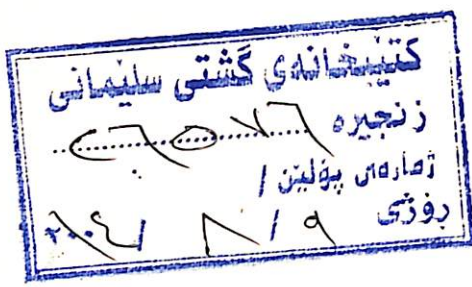 کتێبخانەی گشتی سلێمانی
زنجیرە ٢٦٥٧٦
ژمارەی پۆلێن /
رۆژی ٩ / ٨ / ٢٠٠٤